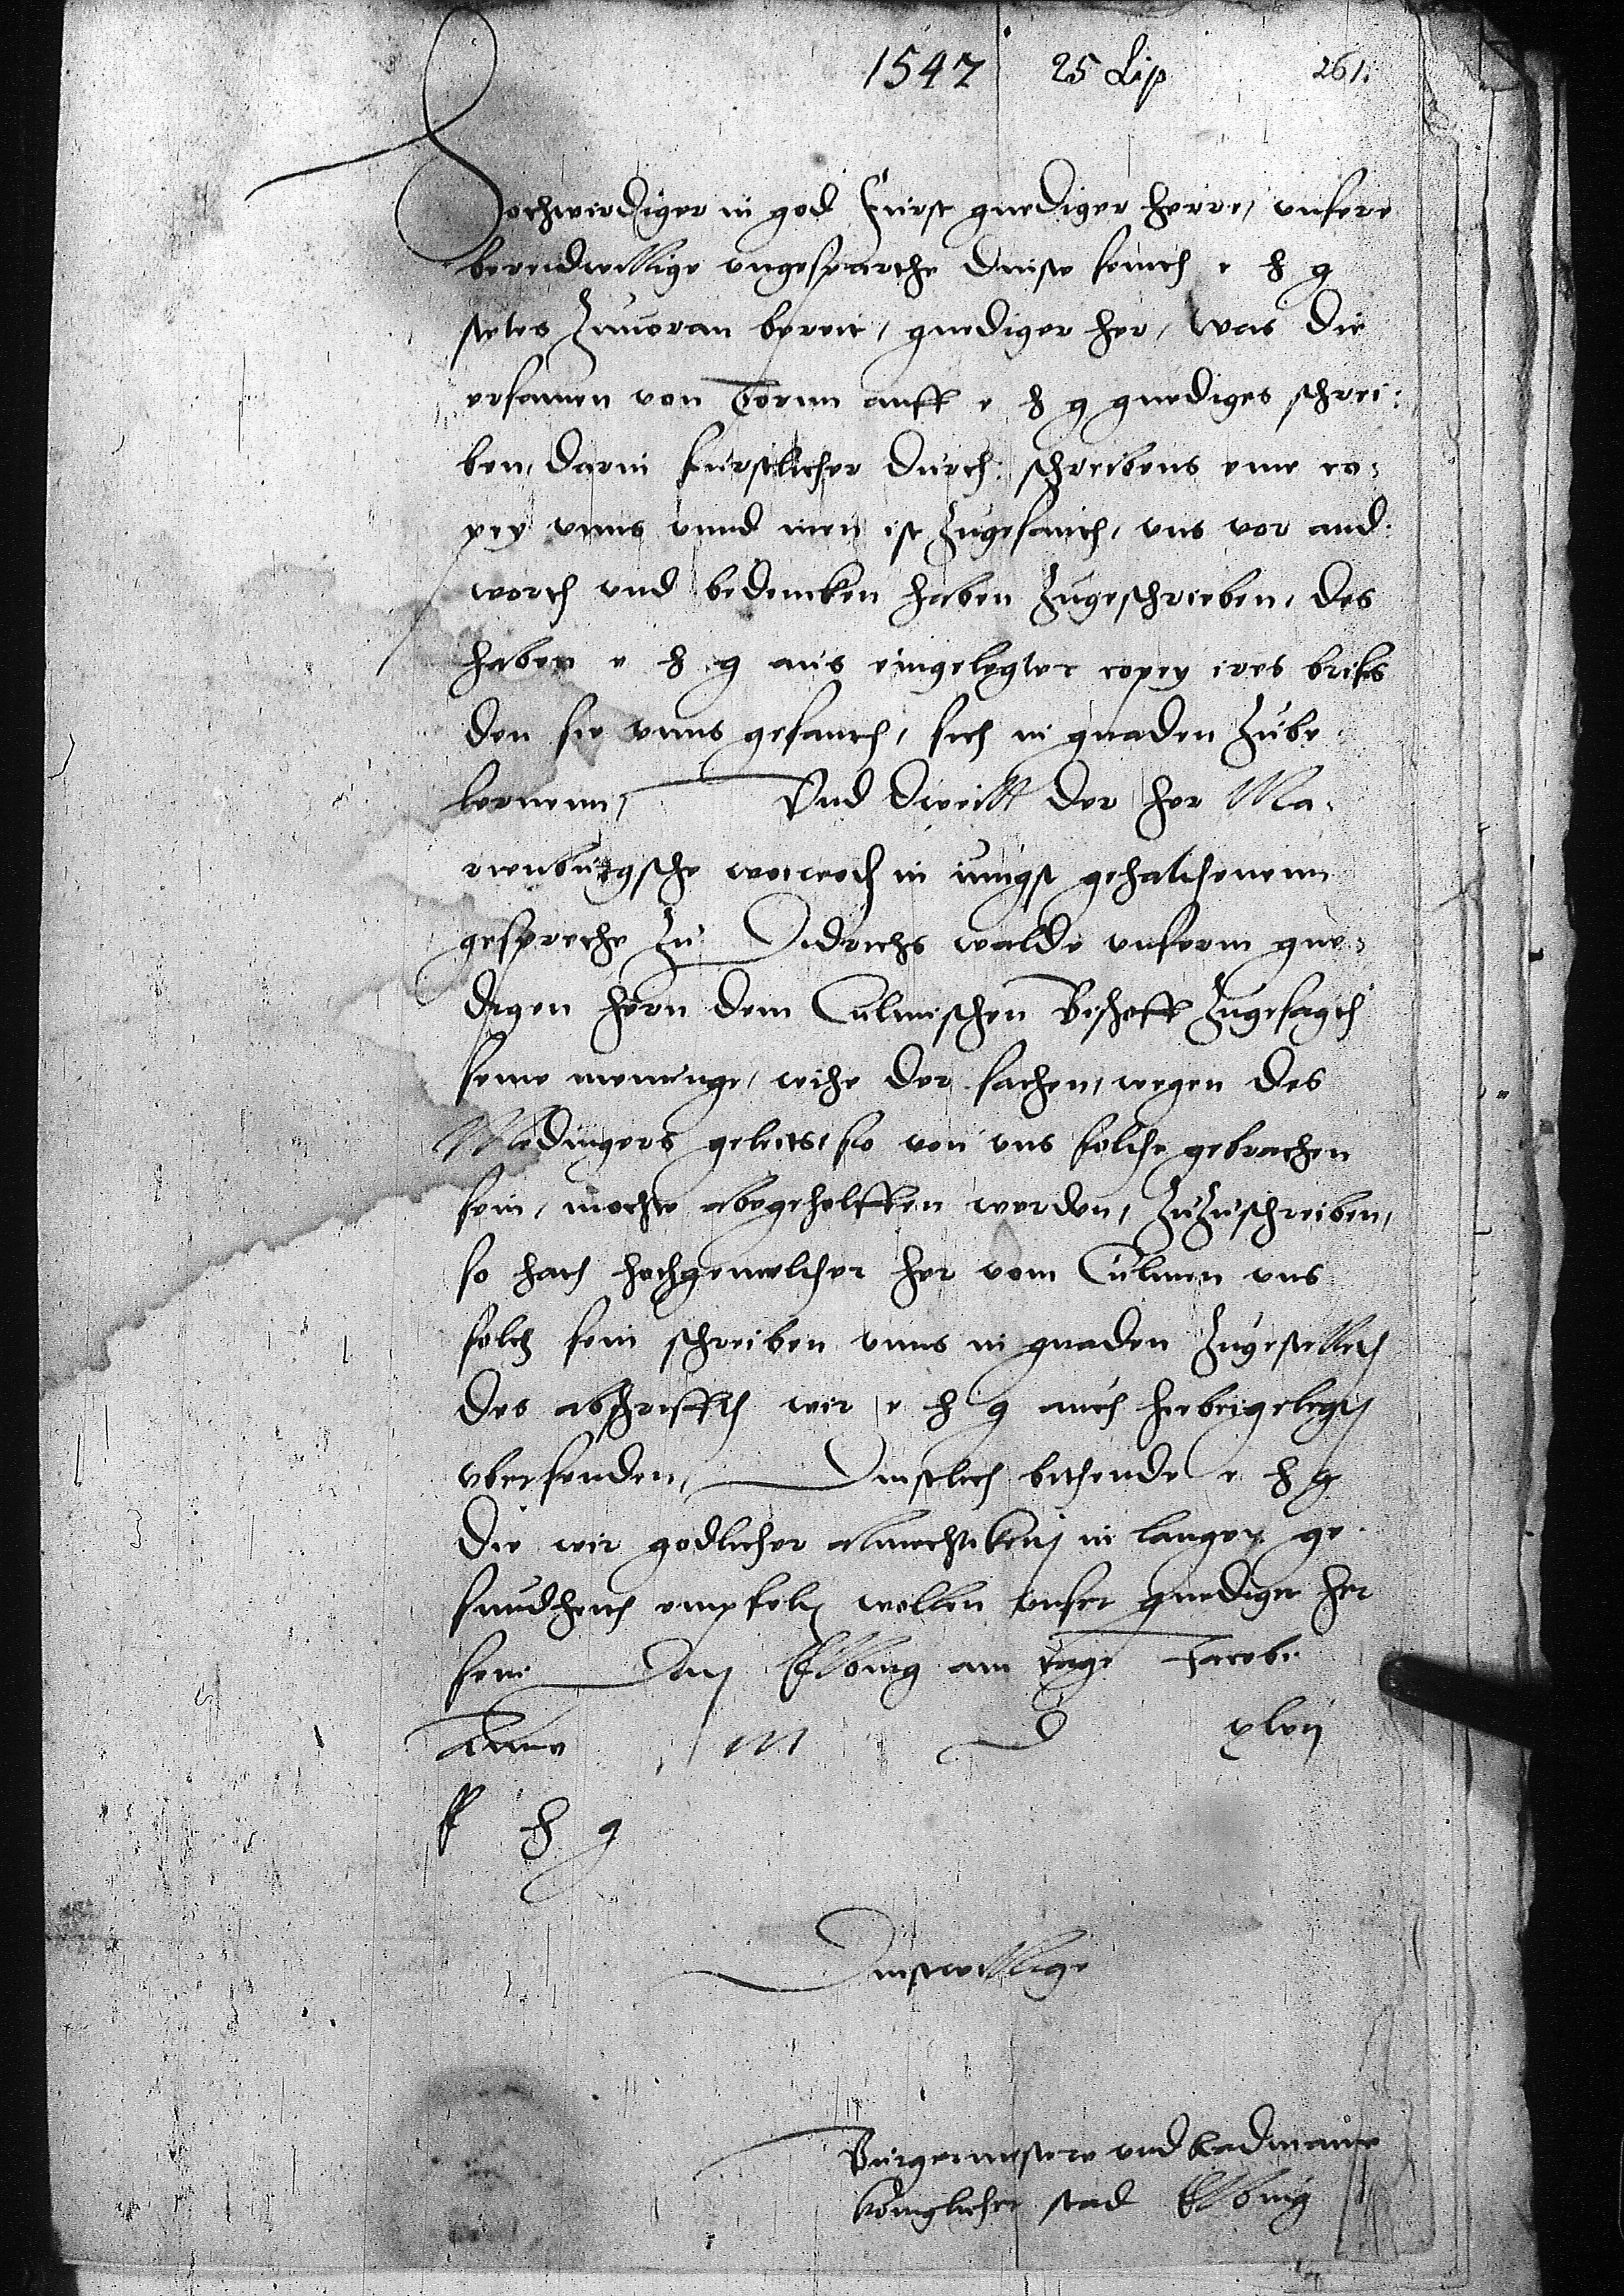 1547 25 Lip 261.
Hochwirdiger in god Fürst gnediger herre, unsere
berendwillige ungesparthe dinste seinth e h g
stetes zuuoran bereit, gnediger her, was die
ersamen von Torun auff e h g gnediges schrei:
ben, darin furstlicher durch: schreibens eine co-
pey unns unnd inen ist zugesanth, uns vor and:
worth und bedencken haben zugeschrieben, des
haben e h g aus eingelegter copey ires brifs
den sie unns gesanth, sich in gnaden zube
lernenn, Und dweill der her Ma-
rienburgsche woiwoth in iungst gehalthenenn
gespreche zu Didrichs walde unserm gne-
digen hern dem Culmischen Bischoff zugesagth
seine meninge, wihe der sachen, wegen des
Medingers geleits, so von uns solthe gebrachen
sein, mochte abgeholffen werden, zuzuschreiben,
so hath hochgemelther her vom Culmen uns
solch sein schreiben unns in gnaden zugestelleth
des abschrifft wir e h g auch hirbeigelegt
ubersenden, Dinstlich bithende e h g
die wir godlicher almechtikeit in langer ge
sundheith empfelen wellen unser gnediger her
sein Dat Elbing am tage Jacobi
Anno M D xlvij
E h g
Dinstwillige
Burgermeistere und Radmanne
koniglicher stad Elbing